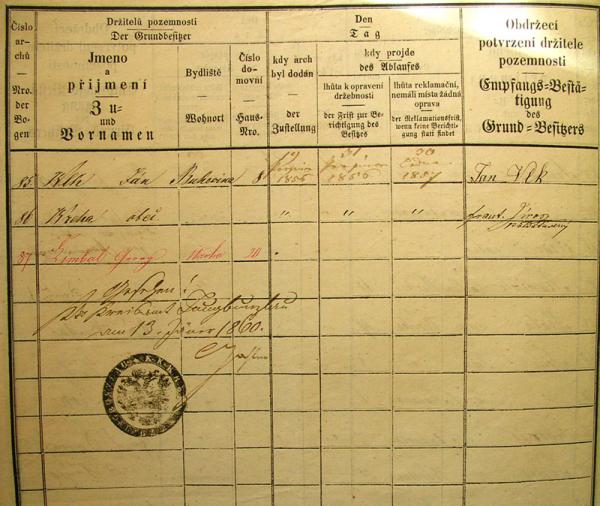 Číslo
ar-
chů
Nro.
der
Bo-
gen
Držitelů pozemnosti
Der Grundbesitzer
Jmeno
a
přijmení
Zu-
und
Vornamen
Bydliště
Wohnort
Číslo
do-
movní
Haus-
Nro.
Den
Tag
kdy arch
byl dodán
der
Zustellung
kdy projde
des Ablaufes
lhůta k opravení
držebnosti
der Frist zur Be-
richtigung des
Besitzes
lhůta reklamační,
nemáli místa žádná
oprava
der Reklamationsfrist,
wenn keine Berichti-
gung statt findet
Obdržecí
potvrzení držitele
pozemnosti
Empfangs-Bestä-
tigung
des
Grund-Besitzers
85 Jan Bukovina 8 1856 1856 1857 Jan Vlk
86 obec " " "
87 Zimbal Georg 20
Gesehen!
Jungbunzlau
am 13. Jäner 1860.